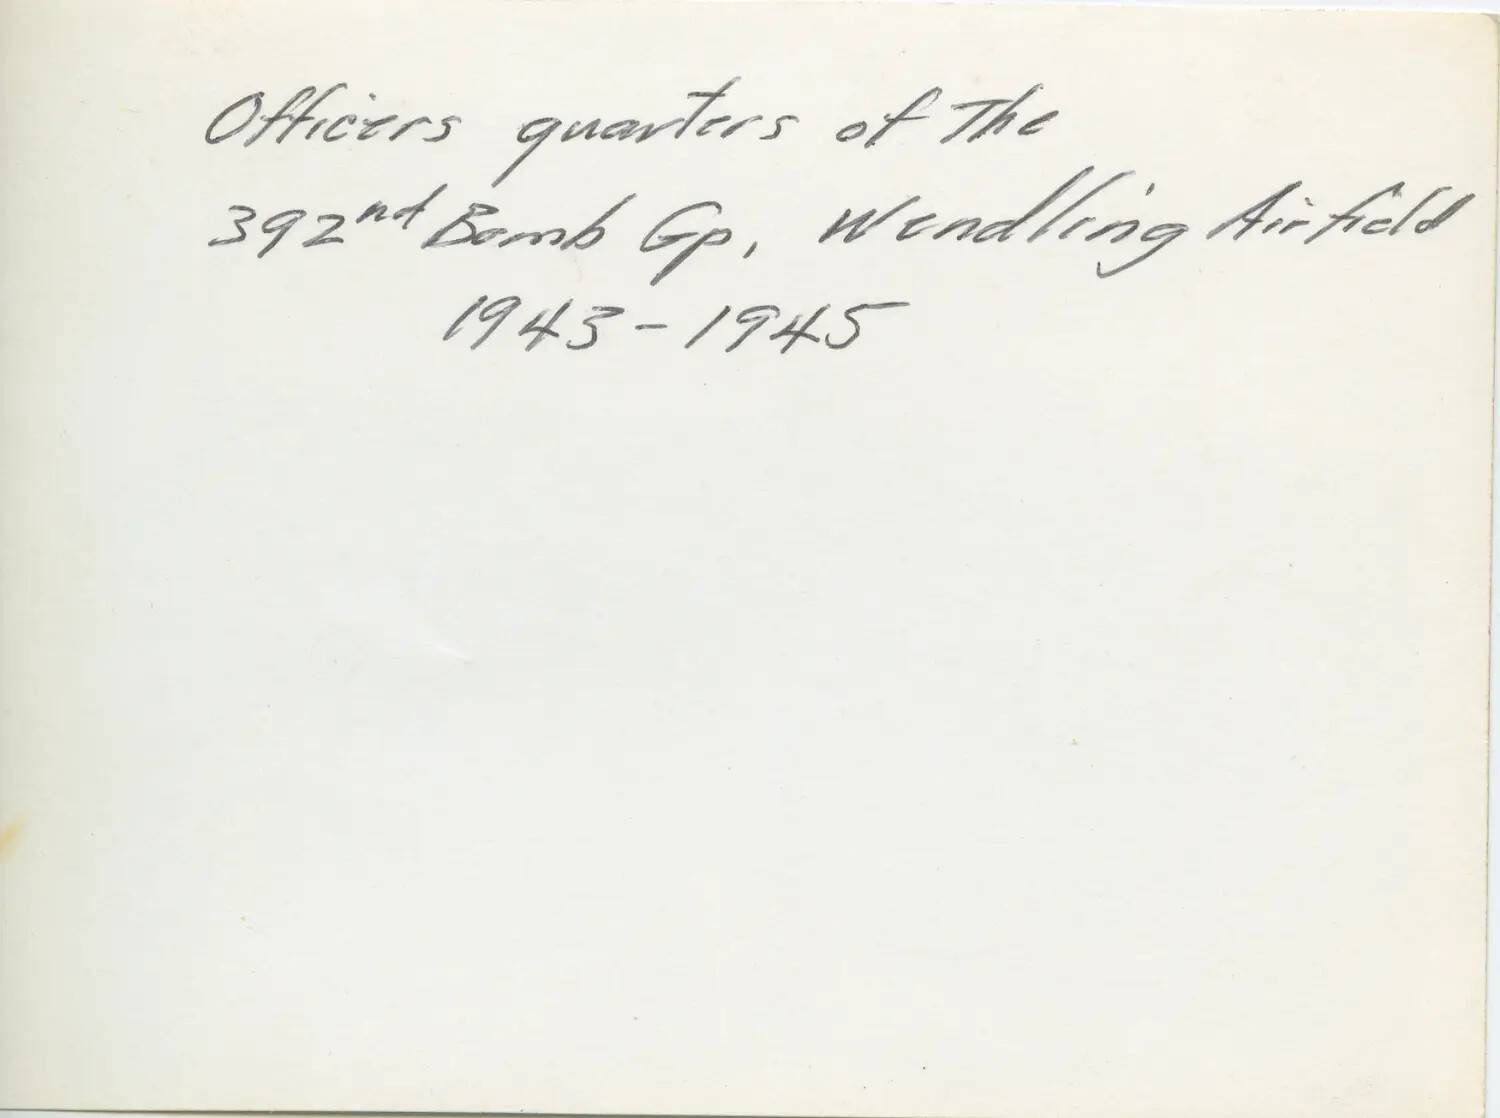 Officers quarters of The
392nd Bomb Gp, Wendling Airfield
1943-1945